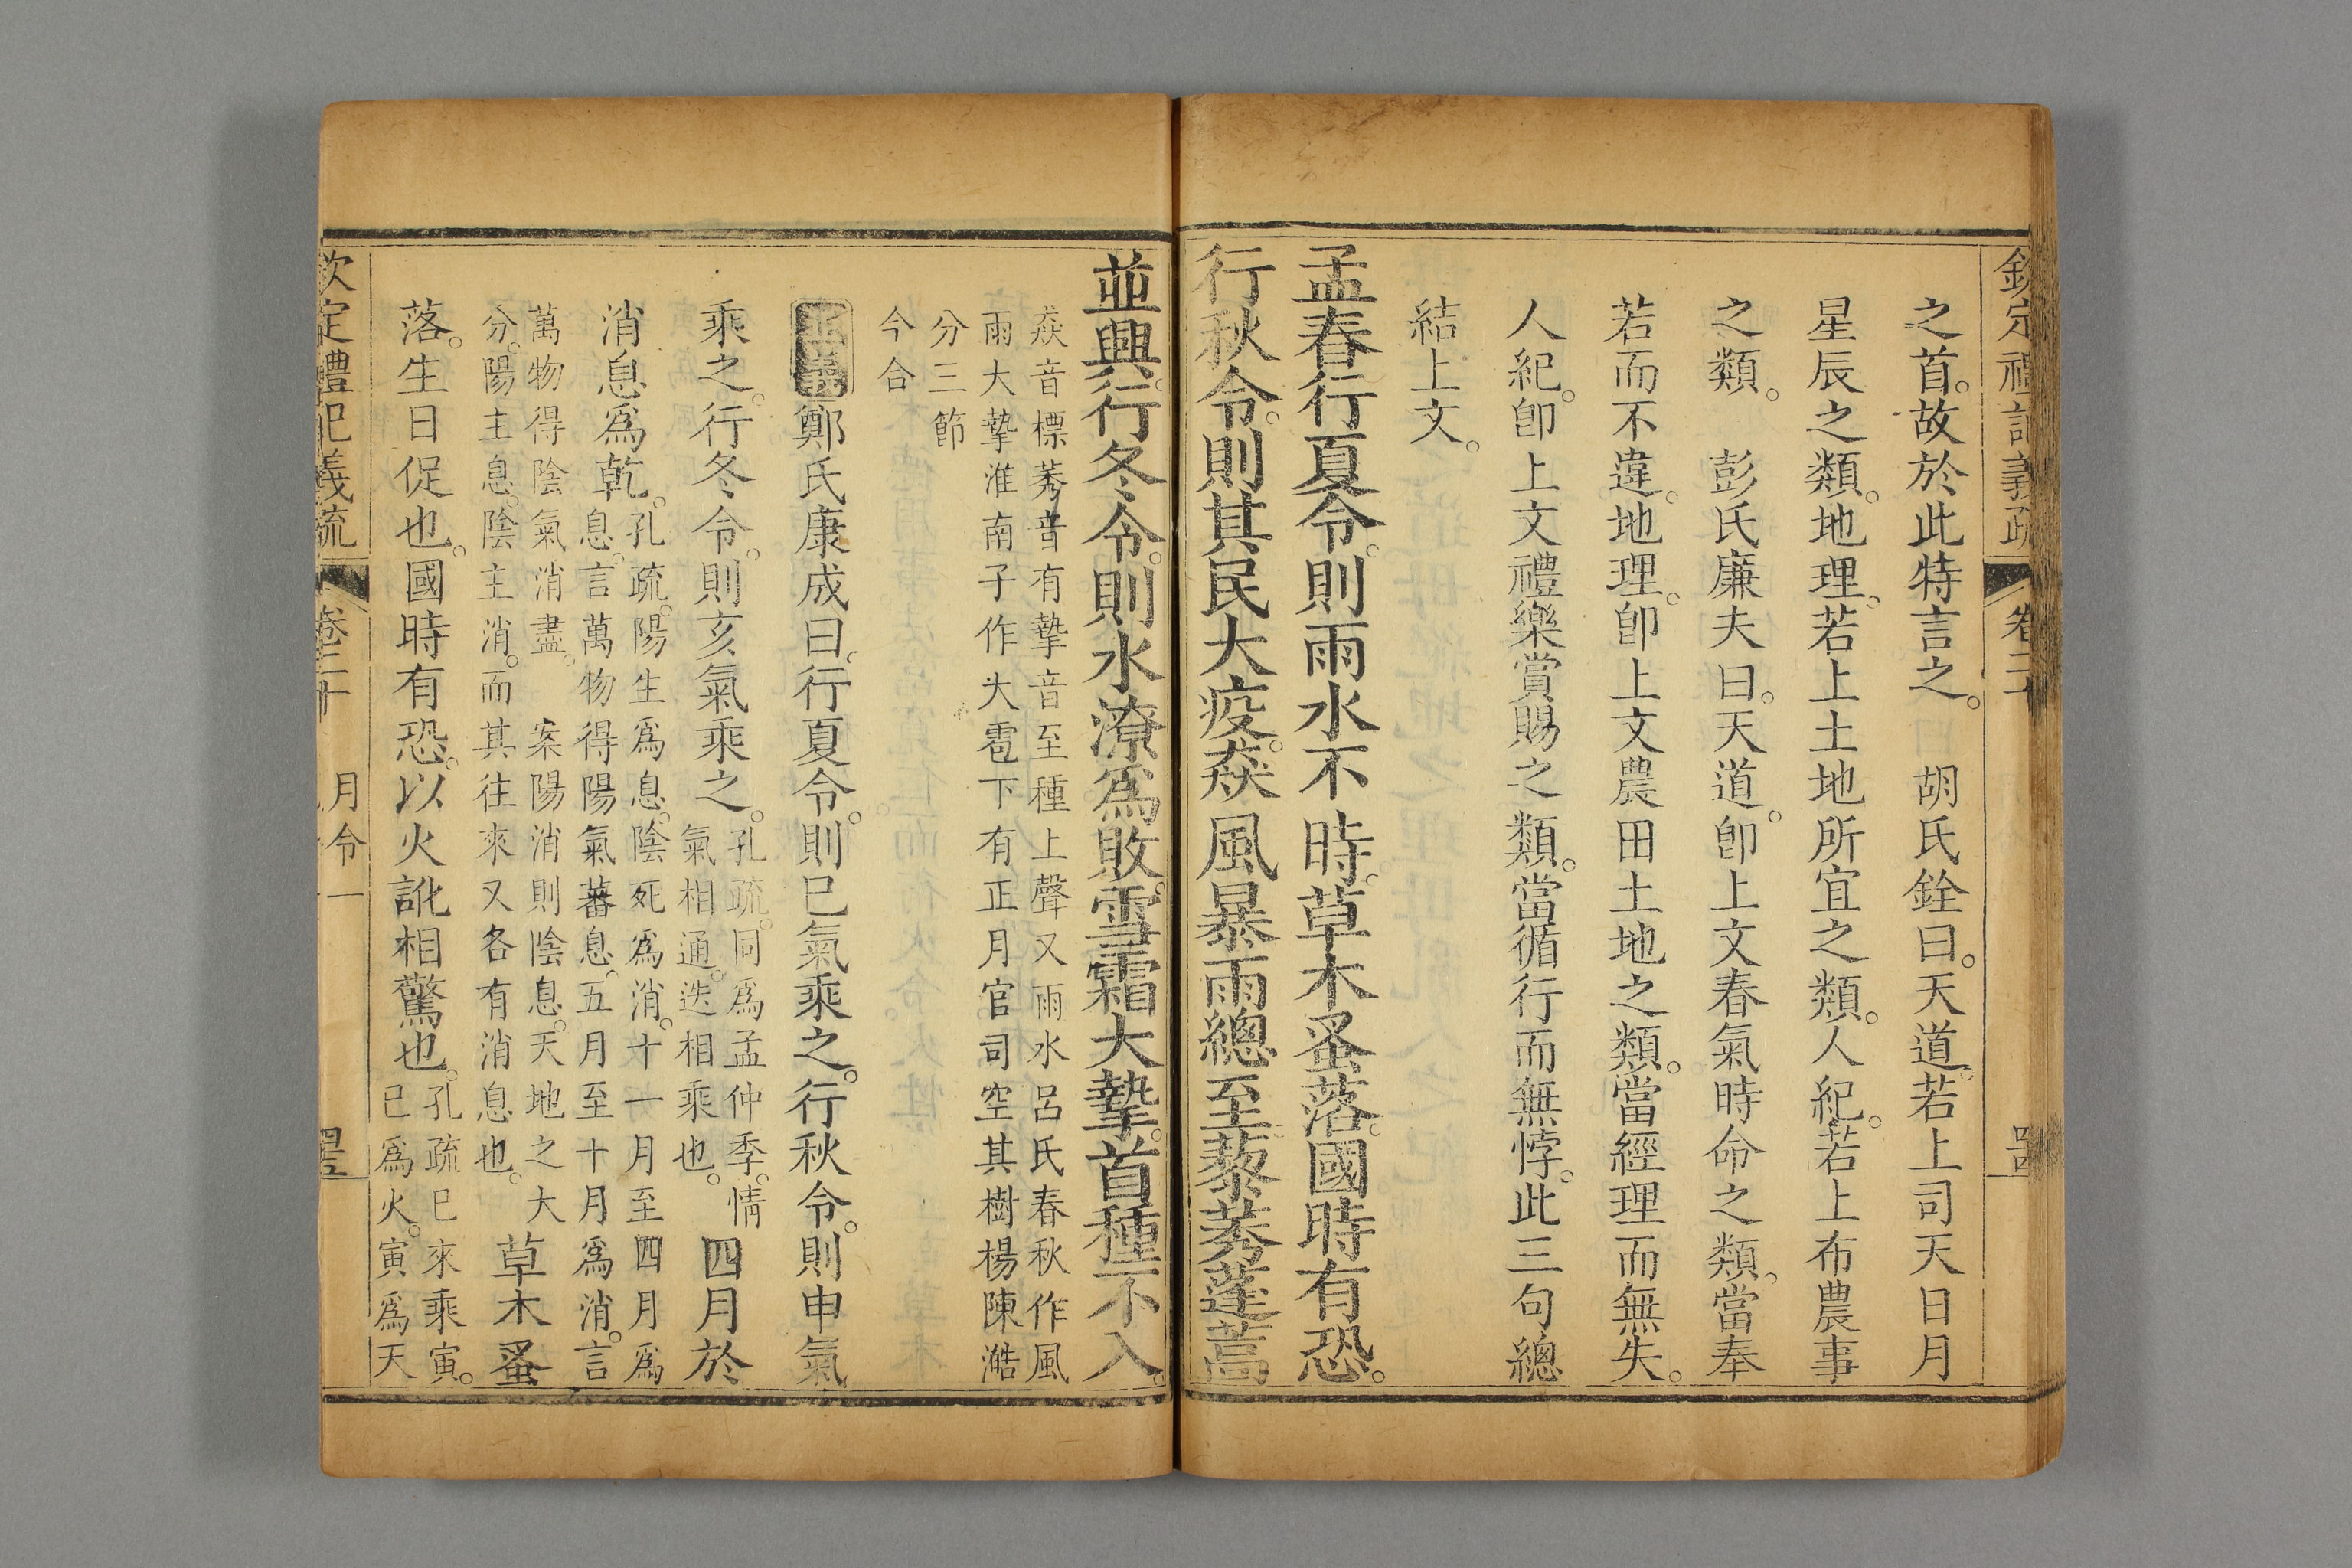 欽定禮記義疏 卷二十
之首。故於此特言之。　胡氏銓曰。天道。若上司天日月
星辰之類。地理。若上土地所宜之類。人紀。若上布農事
之類。　彭氏廉夫曰。天道。卽上文春氣時命之類。當奉
若而不違。地理。卽上文農田土地之類。當經理而無失。
人紀。卽上文禮樂賞賜之類。當循行而無悖。此三句總
結上文。
孟春行夏令。則雨水不時。草木蚤落。國時有恐。
行秋令。則其民大疫。猋風暴雨總至。藜莠蓬蒿
並興。行冬令。則水潦爲敗。雪霜大摯。首種不入。
猋音標莠音有摯音至種上聲又雨水呂氏春秋作風
雨大摯淮南子作大雹下有正月官司空其樹楊陳澔
分三節
今合
正義鄭氏康成曰。行夏令。則巳氣乘之。行秋令。則申氣
乘之。行冬令。則亥氣乘之。
孔疏。同爲孟仲季。情
氣相通。迭相乘也。
四月於
消息爲乾。
孔疏。陽生爲息。陰死爲消。十一月至四月爲
息。言萬物得陽氣蕃息。五月至十月爲消。言
萬物得陰氣消盡。　案陽消則陰息。天地之大
分。陽主息。陰主消。而其往來又各有消息也。
草木蚤
落。生日促也。國時有恐。以火訛相驚也。
孔疏巳來乘寅。
巳爲火。寅爲天
欽定禮記義疏 卷二十 月令一